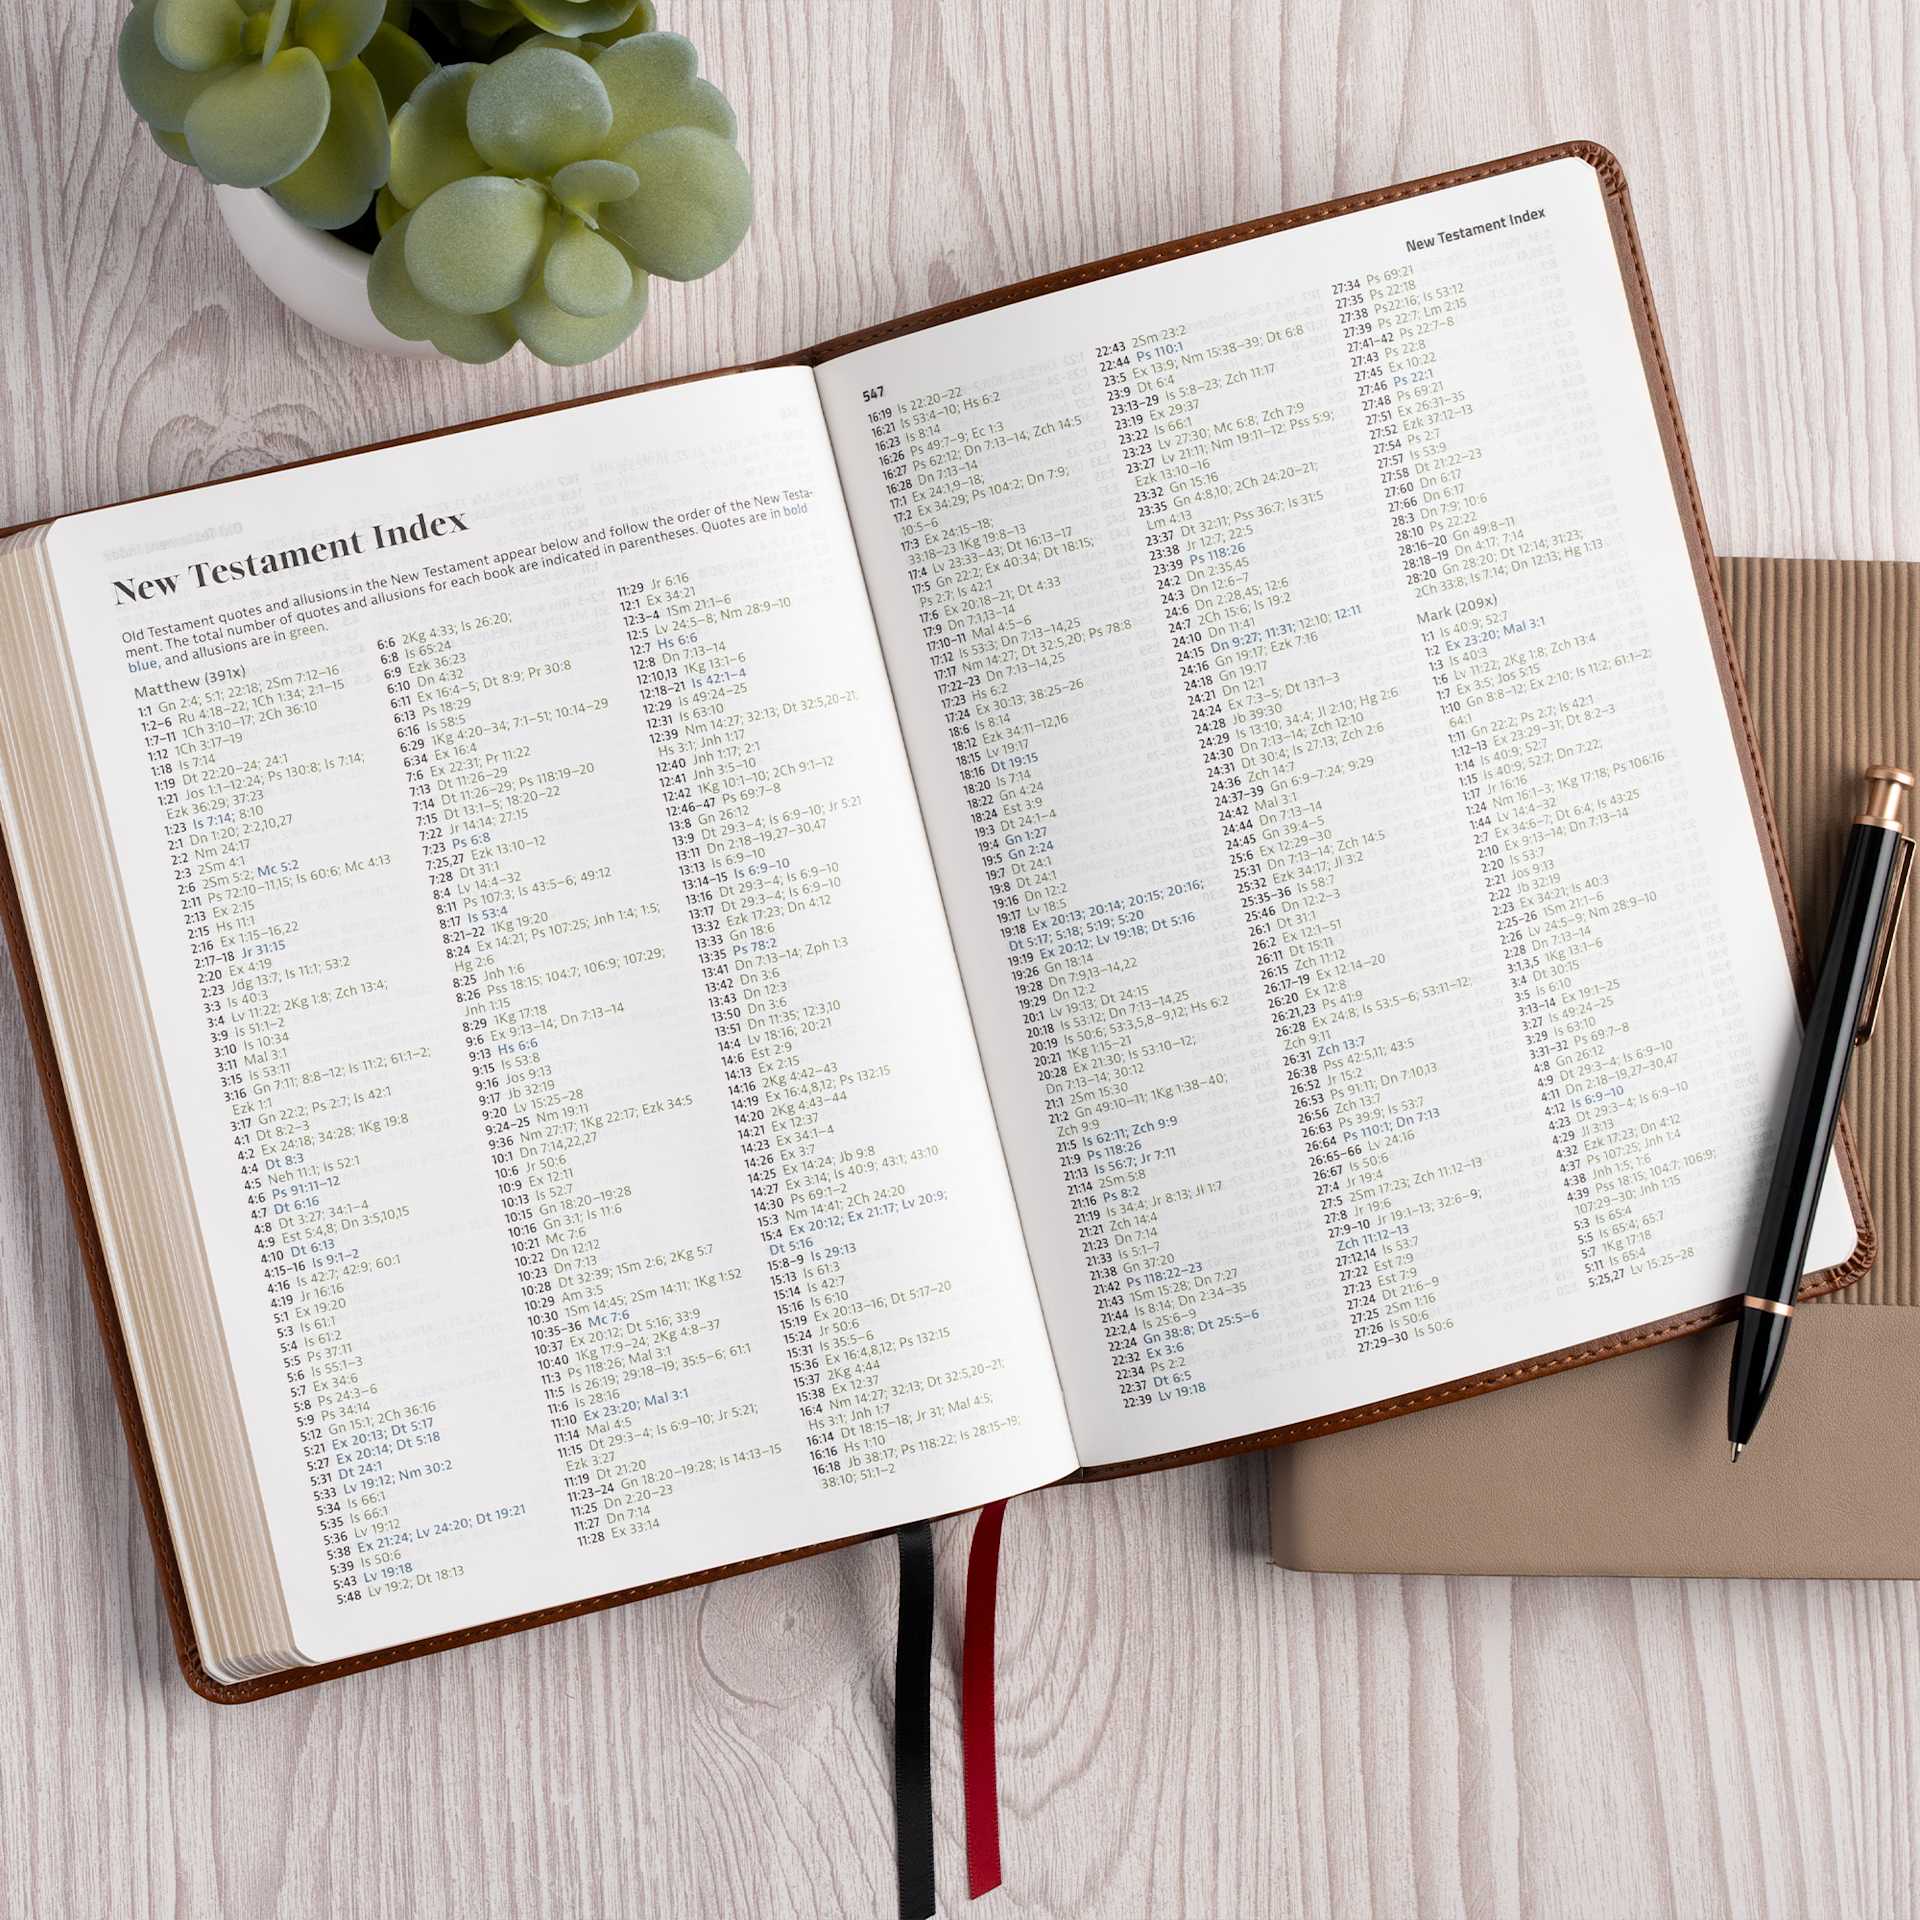 New Testament Index
Old Testament quotes and allusions in the New Testament appear below and follow the order of the New Testa-
ment. The total number of quotes and allusions for each book are indicated in parentheses. Quotes are in bold
blue, and allusions are in green.
Matthew (391x)
1:1 Gn 2:4; 5:1; 22:18; 2Sm 7:12–16
1:2–6 Ru 4:18–22; 1Ch 1:34; 2:1–15
1:7–11 1Ch 3:10–17; 2Ch 36:10
1:12 1Ch 3:17–19
1:18 Is 7:14
1:19 Dt 22:20–24; 24:1
1:21 Jos 1:1–12:24; Ps 130:8; Is 7:14;
Ezk 36:29; 37:23
1:23 Is 7:14; 8:10
2:1 Dn 1:20; 2:2,10,27
2:2 Nm 24:17
2:3 2Sm 4:1
2:6 2Sm 5:2; Mc 5:2
2:11 Ps 72:10–11,15; Is 60:6; Mc 4:13
2:13 Ex 2:15
2:15 Hs 11:1
2:16 Ex 1:15–16,22
2:17–18 Jr 31:15
2:20 Ex 4:19
2:23 Jdg 13:7; Is 11:1; 53:2
3:3 Is 40:3
3:4 Lv 11:22; 2Kg 1:8; Zch 13:4;
3:9 Is 51:1–2
3:10 Is 10:34
3:11 Mal 3:1
3:15 Is 53:11
3:16 Gn 7:11; 8:8–12; Is 11:2; 61:1–2;
Ezk 1:1
3:17 Gn 22:2; Ps 2:7; Is 42:1
4:1 Dt 8:2–3
4:2 Ex 24:18; 34:28; 1Kg 19:8
4:4 Dt 8:3
4:5 Neh 11:1; Is 52:1
4:6 Ps 91:11–12
4:7 Dt 6:16
4:8 Dt 3:27; 34:1–4
4:9 Est 5:4,8; Dn 3:5,10,15
4:10 Dt 6:13
4:15–16 Is 9:1–2
4:16 Is 42:7; 42:9; 60:1
4:19 Jr 16:16
5:1 Ex 19:20
5:3 Is 61:1
5:4 Is 61:2
5:5 Ps 37:11
5:6 Is 55:1–3
5:7 Ex 34:6
5:8 Ps 24:3–6
5:9 Ps 34:14
5:12 Gn 15:1; 2Ch 36:16
5:21 Ex 20:13; Dt 5:17
5:27 Ex 20:14; Dt 5:18
5:31 Dt 24:1
5:33 Lv 19:12; Nm 30:2
5:34 Is 66:1
5:35 Is 66:1
5:36 Lv 19:12
5:38 Ex 21:24; Lv 24:20; Dt 19:21
5:39 Is 50:6
5:43 Lv 19:18
5:48 Lv 19:2; Dt 18:13
6:6 2Kg 4:33; Is 26:20;
6:8 Is 65:24
6:9 Ezk 36:23
6:10 Dn 4:32
6:11 Ex 16:4–5; Dt 8:9; Pr 30:8
6:13 Ps 18:29
6:16 Is 58:5
6:29 1Kg 4:20–34; 7:1–51; 10:14–29
6:34 Ex 16:4
7:6 Ex 22:31; Pr 11:22
7:13 Dt 11:26–29
7:14 Dt 11:26–29; Ps 118:19–20
7:15 Dt 13:1–5; 18:20–22
7:22 Jr 14:14; 27:15
7:23 Ps 6:8
7:25,27 Ezk 13:10–12
7:28 Dt 31:1
8:4 Lv 14:4–32
8:11 Ps 107:3; Is 43:5–6; 49:12
8:17 Is 53:4
8:21–22 1Kg 19:20
8:24 Ex 14:21; Ps 107:25; Jnh 1:4; 1:5;
Hg 2:6
8:25 Jnh 1:6
8:26 Pss 18:15; 104:7; 106:9; 107:29;
Jnh 1:15
8:29 1Kg 17:18
9:6 Ex 9:13–14; Dn 7:13–14
9:13 Hs 6:6
9:15 Is 53:8
9:16 Jos 9:13
9:17 Jb 32:19
9:20 Lv 15:25–28
9:24–25 Nm 19:11
9:36 Nm 27:17; 1Kg 22:17; Ezk 34:5
10:1 Dn 7:14,22,27
10:6 Jr 50:6
10:9 Ex 12:11
10:13 Is 52:7
10:15 Gn 18:20–19:28
10:16 Gn 3:1; Is 11:6
10:21 Mc 7:6
10:22 Dn 12:12
10:23 Dn 7:13
10:28 Dt 32:39; 1Sm 2:6; 2Kg 5:7
10:29 Am 3:5
10:30 1Sm 14:45; 2Sm 14:11; 1Kg 1:52
10:35–36 Mc 7:6
10:37 Ex 20:12; Dt 5:16; 33:9
10:40 1Kg 17:9–24; 2Kg 4:8–37
11:3 Ps 118:26; Mal 3:1
11:5 Is 26:19; 29:18–19; 35:5–6; 61:1
11:6 Is 28:16
11:10 Ex 23:20; Mal 3:1
11:14 Mal 4:5
11:15 Dt 29:3–4; Is 6:9–10; Jr 5:21;
Ezk 3:27
11:19 Dt 21:20
11:23–24 Gn 18:20–19:28; Is 14:13–15
11:25 Dn 2:20–23
11:27 Dn 7:14
11:28 Ex 33:14
11:29 Jr 6:16
12:1 Ex 34:21
12:3–4 1Sm 21:1–6
12:5 Lv 24:5–8; Nm 28:9–10
12:7 Hs 6:6
12:8 Dn 7:13–14
12:10,13 1Kg 13:1–6
12:18–21 Is 42:1–4
12:29 Is 49:24–25
12:31 Is 63:10
12:39 Nm 14:27; 32:13; Dt 32:5,20–21;
Hs 3:1; Jnh 1:17
12:40 Jnh 1:17; 2:1
12:41 Jnh 3:5–10
12:42 1Kg 10:1–10; 2Ch 9:1–12
12:46–47 Ps 69:7–8
13:8 Gn 26:12
13:9 Dt 29:3–4; Is 6:9–10; Jr 5:21
13:11 Dn 2:18–19,27–30,47
13:13 Is 6:9–10
13:14–15 Is 6:9–10
13:16 Dt 29:3–4; Is 6:9–10
13:17 Dt 29:3–4; Is 6:9–10
13:32 Ezk 17:23; Dn 4:12
13:33 Gn 18:6
13:35 Ps 78:2
13:41 Dn 7:13–14; Zph 1:3
13:42 Dn 3:6
13:43 Dn 12:3
13:50 Dn 3:6
13:51 Dn 11:35; 12:3,10
14:4 Lv 18:16; 20:21
14:6 Est 2:9
14:13 Ex 2:15
14:16 2Kg 4:42–43
14:19 Ex 16:4,8,12; Ps 132:15
14:20 2Kg 4:43–44
14:21 Ex 12:37
14:23 Ex 34:1–4
14:26 Ex 3:7
14:25 Ex 14:24; Jb 9:8
14:27 Ex 3:14; Is 40:9; 43:1; 43:10
14:30 Ps 69:1–2
15:3 Nm 14:41; 2Ch 24:20
15:4 Ex 20:12; Ex 21:17; Lv 20:9;
Dt 5:16
15:8–9 Is 29:13
15:13 Is 61:3
15:14 Is 42:7
15:16 Is 6:10
15:19 Ex 20:13–16; Dt 5:17–20
15:24 Jr 50:6
15:31 Is 35:5–6
15:36 Ex 16:4,8,12; Ps 132:15
15:37 2Kg 4:44
15:38 Ex 12:37
16:4 Nm 14:27; 32:13; Dt 32:5,20–21;
Hs 3:1; Jnh 1:7
16:14 Dt 18:15–18; Jr 31; Mal 4:5;
16:16 Hs 1:10
16:18 Jb 38:17; Ps 118:22; Is 28:15–19;
38:10; 51:1–2
547
New Testament Index
16:19 Is 22:20–22
16:21 Is 53:4–10; Hs 6:2
16:23 Is 8:14
16:26 Ps 49:7–9; Ec 1:3
16:27 Ps 62:12; Dn 7:13–14; Zch 14:5
16:28 Dn 7:13–14
17:1 Ex 24:1,9–18;
17:2 Ex 34:29; Ps 104:2; Dn 7:9;
10:5–6
17:3 Ex 24:15–18;
33:18–23 1Kg 19:8–13
17:4 Lv 23:33–43; Dt 16:13–17
17:5 Gn 22:2; Ex 40:34; Dt 18:15;
Ps 2:7; Is 42:1
17:6 Ex 20:18–21; Dt 4:33
17:9 Dn 7:1,13–14
17:10–11 Mal 4:5–6
17:12 Is 53:3; Dn 7:13–14,25
17:17 Nm 14:27; Dt 32:5,20; Ps 78:8
17:22–23 Dn 7:13–14,25
17:23 Hs 6:2
17:24 Ex 30:13; 38:25–26
18:6 Is 8:14
18:12 Ezk 34:11–12,16
18:15 Lv 19:17
18:16 Dt 19:15
18:20 Is 7:14
18:22 Gn 4:24
18:24 Est 3:9
19:3 Dt 24:1–4
19:4 Gn 1:27
19:5 Gn 2:24
19:7 Dt 24:1
19:8 Dt 24:1
19:16 Dn 12:2
19:17 Lv 18:5
19:18 Ex 20:13; 20:14; 20:15; 20:16;
Dt 5:17; 5:18; 5:19; 5:20
19:19 Ex 20:12; Lv 19:18; Dt 5:16
19:26 Gn 18:14
19:28 Dn 7:9,13–14,22
19:29 Dn 12:2
20:1 Lv 19:13; Dt 24:15
20:18 Is 53:12; Dn 7:13–14,25
20:19 Is 50:6; 53:3,5,8–9,12; Hs 6:2
20:21 1Kg 1:15–21
20:28 Ex 21:30; Is 53:10–12;
Dn 7:13–14; 30:12
21:1 2Sm 15:30
21:2 Gn 49:10–11; 1Kg 1:38–40;
Zch 9:9
21:5 Is 62:11; Zch 9:9
21:9 Ps 118:26
21:13 Is 56:7; Jr 7:11
21:14 2Sm 5:8
21:16 Ps 8:2
21:19 Is 34:4; Jr 8:13; Jl 1:7
21:21 Zch 14:4
21:23 Dn 7:14
21:33 Is 5:1–7
21:38 Gn 37:20
21:42 Ps 118:22–23
21:43 1Sm 15:28; Dn 7:27
21:44 Is 8:14; Dn 2:34–35
22:2,4 Is 25:6–9
22:24 Gn 38:8; Dt 25:5–6
22:32 Ex 3:6
22:34 Ps 2:2
22:37 Dt 6:5
22:39 Lv 19:18
22:43 2Sm 23:2
22:44 Ps 110:1
23:5 Ex 13:9; Nm 15:38–39; Dt 6:8
23:9 Dt 6:4
23:13–29 Is 5:8–23; Zch 11:17
23:19 Ex 29:37
23:22 Is 66:1
23:23 Lv 27:30; Mc 6:8; Zch 7:9
23:27 Lv 21:11; Nm 19:11–12; Pss 5:9;
Ezk 13:10–16
23:32 Gn 15:16
23:35 Gn 4:8,10; 2Ch 24:20–21;
Lm 4:13
23:37 Dt 32:11; Pss 36:7; Is 31:5
23:38 Jr 12:7; 22:5
23:39 Ps 118:26
24:2 Dn 2:35,45
24:3 Dn 12:6–7
24:6 Dn 2:28,45; 12:6
24:7 2Ch 15:6; Is 19:2
24:10 Dn 11:41
24:15 Dn 9:27; 11:31; 12:10; 12:11
24:16 Gn 19:17; Ezk 7:16
24:18 Gn 19:17
24:21 Dn 12:1
24:24 Ex 7:3–5; Dt 13:1–3
24:28 Jb 39:30
24:29 Is 13:10; 34:4; Jl 2:10; Hg 2:6
24:30 Dn 7:13–14; Zch 12:10
24:31 Dt 30:4; Is 27:13; Zch 2:6
24:36 Zch 14:7
24:37–39 Gn 6:9–7:24; 9:29
24:42 Mal 3:1
24:44 Dn 7:13–14
24:45 Gn 39:4–5
25:6 Ex 12:29–30
25:31 Dn 7:13–14; Zch 14:5
25:32 Ezk 34:17; Jl 3:2
25:35–36 Is 58:7
25:46 Dn 12:2–3
26:1 Dt 31:1
26:2 Ex 12:1–51
26:11 Dt 15:11
26:15 Zch 11:12
26:17–19 Ex 12:14–20
26:20 Ex 12:8
26:21,23 Ps 41:9
26:28 Ex 24:8; Is 53:5–6; 53:11–12;
Zch 9:11
26:31 Zch 13:7
26:38 Pss 42:5,11; 43:5
26:52 Jr 15:2
26:53 Ps 91:11; Dn 7:10,13
26:56 Zch 13:7
26:63 Ps 39:9; Is 53:7
26:64 Ps 110:1; Dn 7:13
26:65–66 Lv 24:16
26:67 Is 50:6
27:4 Jr 19:4
27:5 2Sm 17:23; Zch 11:12–13
27:8 Jr 19:6
27:9–10 Jr 19:1–13; 32:6–9;
Zch 11:12–13
27:12,14 Is 53:7
27:22 Est 7:9
27:23 Est 7:9
27:24 Dt 21:6–9
27:25 2Sm 1:16
27:26 Is 50:6
27:29–30 Is 50:6
27:34 Ps 69:21
27:35 Ps 22:18
27:38 Ps22:16; Is 53:12
27:39 Ps 22:7; Lm 2:15
27:41–42 Ps 22:7–8
27:43 Ps 22:8
27:45 Ex 10:22
27:46 Ps 22:1
27:48 Ps 69:21
27:51 Ex 26:31–35
27:52 Ezk 37:12–13
27:54 Ps 2:7
27:57 Is 53:9
27:58 Dt 21:22–23
27:60 Dn 6:17
27:66 Dn 6:17
28:3 Dn 7:9; 10:6
28:10 Ps 22:22
28:16–20 Gn 49:8–11
28:18–19 Dn 4:17; 7:14
28:20 Gn 28:20; Dt 12:14; 31:23;
2Ch 33:8; Is 7:14; Dn 12:13; Hg 1:13
Mark (209x)
1:1 Is 40:9; 52:7
1:2 Ex 23:20; Mal 3:1
1:3 Is 40:3
1:6 Lv 11:22; 2Kg 1:8; Zch 13:4
1:7 Ex 3:5; Jos 5:15
1:10 Gn 8:8–12; Ex 2:10; Is 11:2; 61:1–2;
64:1
1:11 Gn 22:2; Ps 2:7; Is 42:1
1:12–13 Ex 23:29–31; Dt 8:2–3
1:14 Is 40:9; 52:7
1:15 Is 40:9; 52:7; Dn 7:22;
1:17 Jr 16:16
1:24 Nm 16:1–3; 1Kg 17:18; Ps 106:16
1:44 Lv 14:4–32
2:7 Ex 34:6–7; Dt 6:4; Is 43:25
2:10 Ex 9:13–14; Dn 7:13–14
2:20 Is 53:7
2:21 Jos 9:13
2:22 Jb 32:19
2:23 Ex 34:21; Is 40:3
2:25–26 1Sm 21:1–6
2:26 Lv 24:5–9; Nm 28:9–10
2:28 Dn 7:13–14
3:1,3,5 1Kg 13:1–6
3:4 Dt 30:15
3:5 Is 6:10
3:13–14 Ex 19:1–25
3:27 Is 49:24–25
3:29 Is 63:10
3:31–32 Ps 69:7–8
4:8 Gn 26:12
4:9 Dt 29:3–4; Is 6:9–10
4:11 Dn 2:18–19,27–30,47
4:12 Is 6:9–10
4:23 Dt 29:3–4; Is 6:9–10
4:29 Jl 3:13
4:32 Ezk 17:23; Dn 4:12
4:37 Ps 107:25; Jnh 1:4
4:38 Jnh 1:5, 1:6
4:39 Pss 18:15; 104:7; 106:9;
107:29–30; Jnh 1:15
5:3 Is 65:4
5:5 Is 65:4; 65:7
5:7 1Kg 17:18
5:11 Is 65:4
5:25,27 Lv 15:25–28